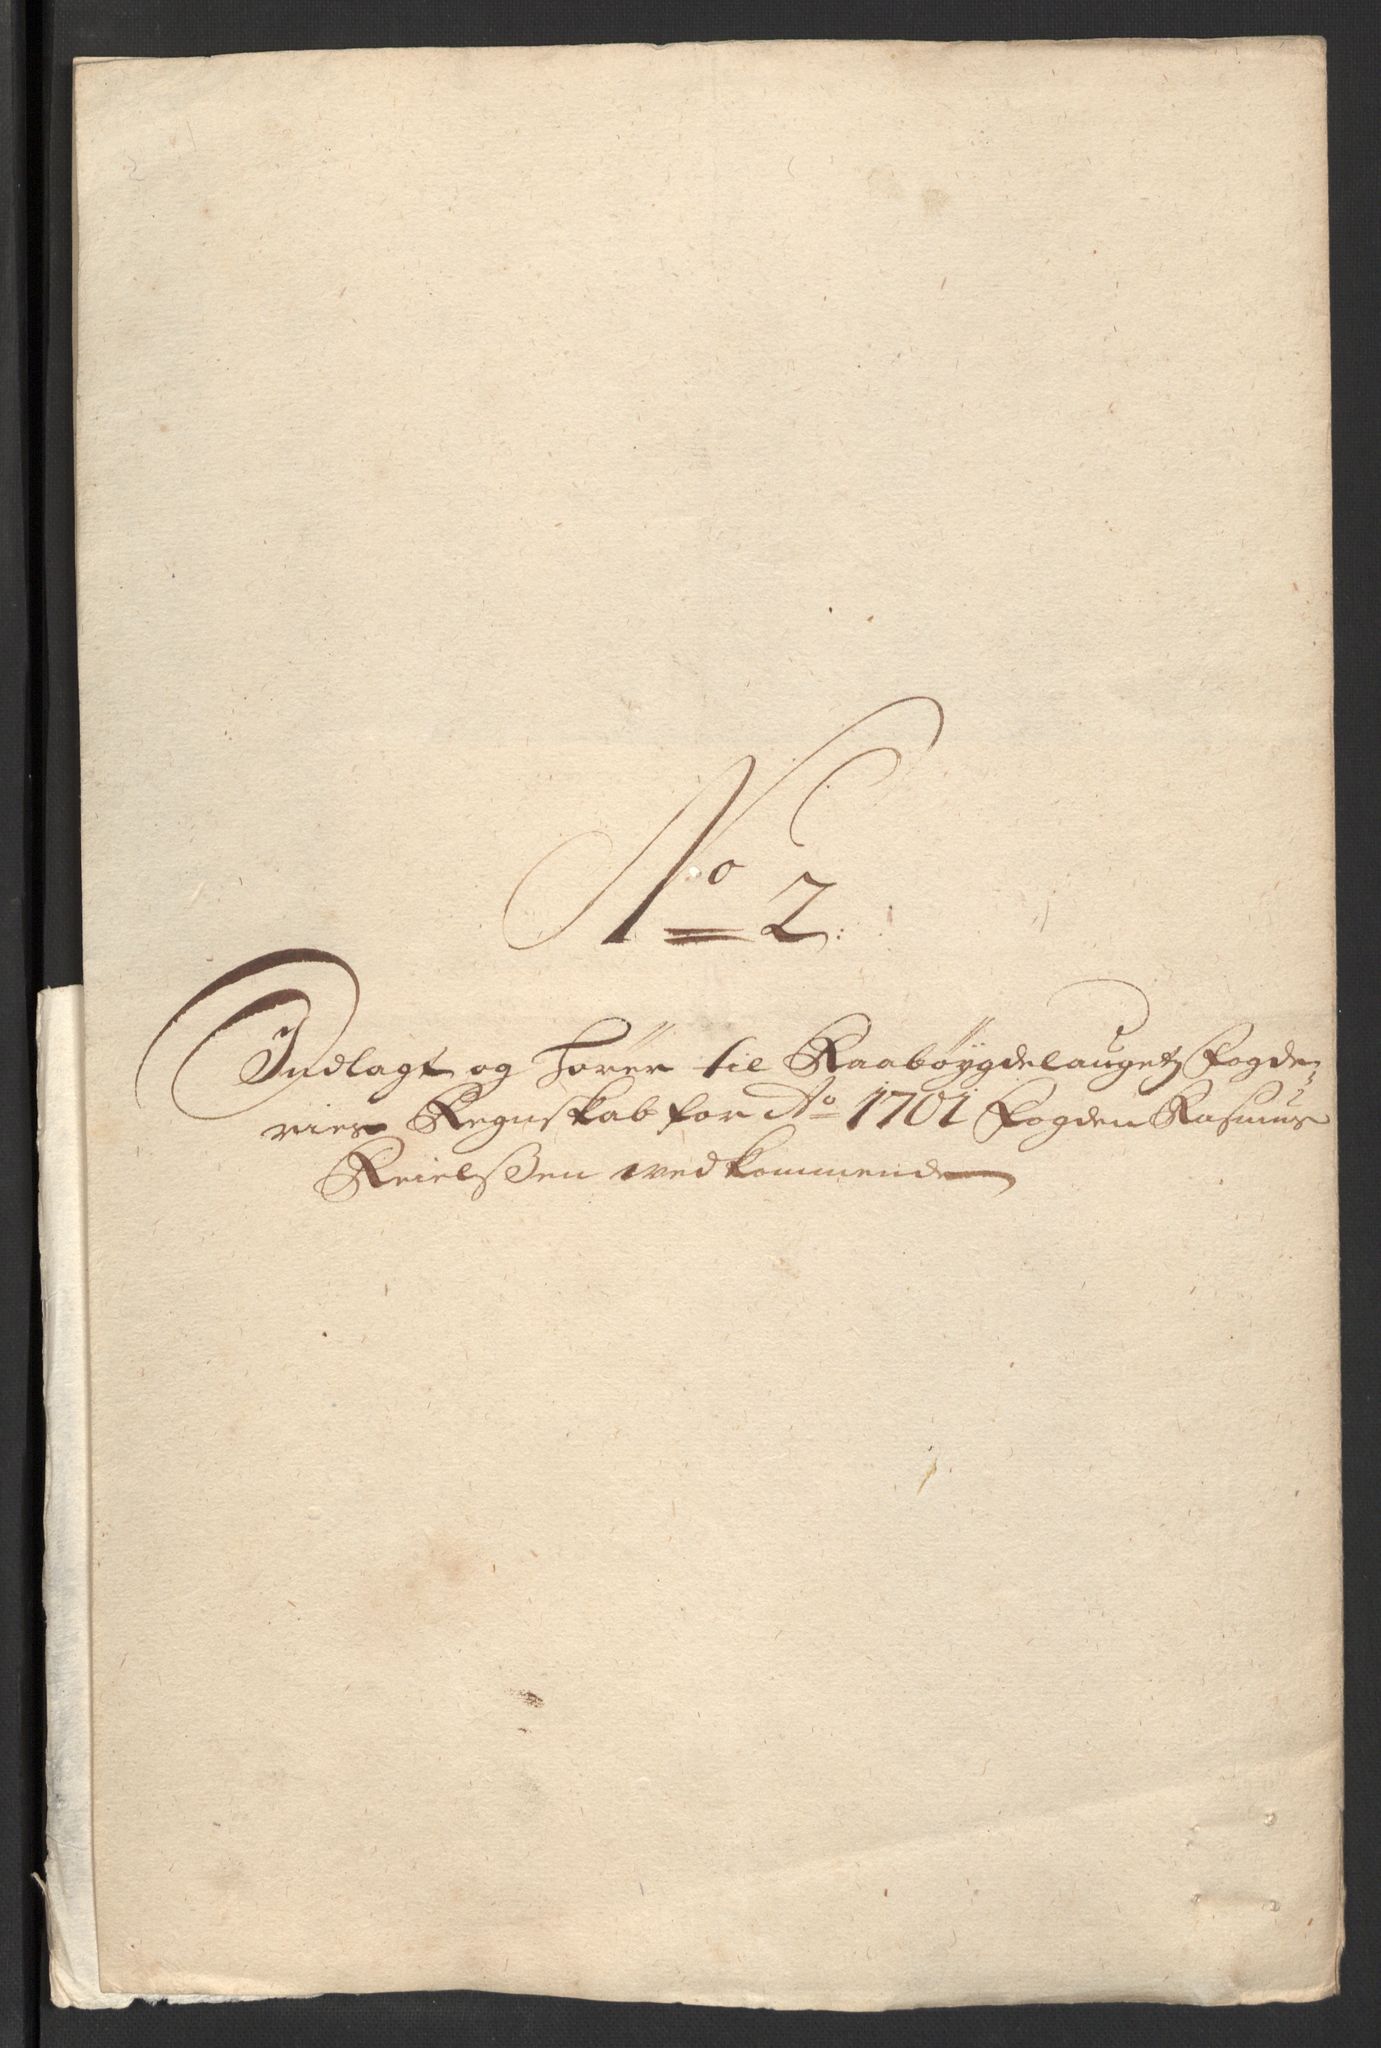 No 2.
Indlagt og hörer til Raabÿgdelaugetz Fogde-
ries Regnskab for Ao 1701 Fogden Rasmus
Keielsßen vedkommende